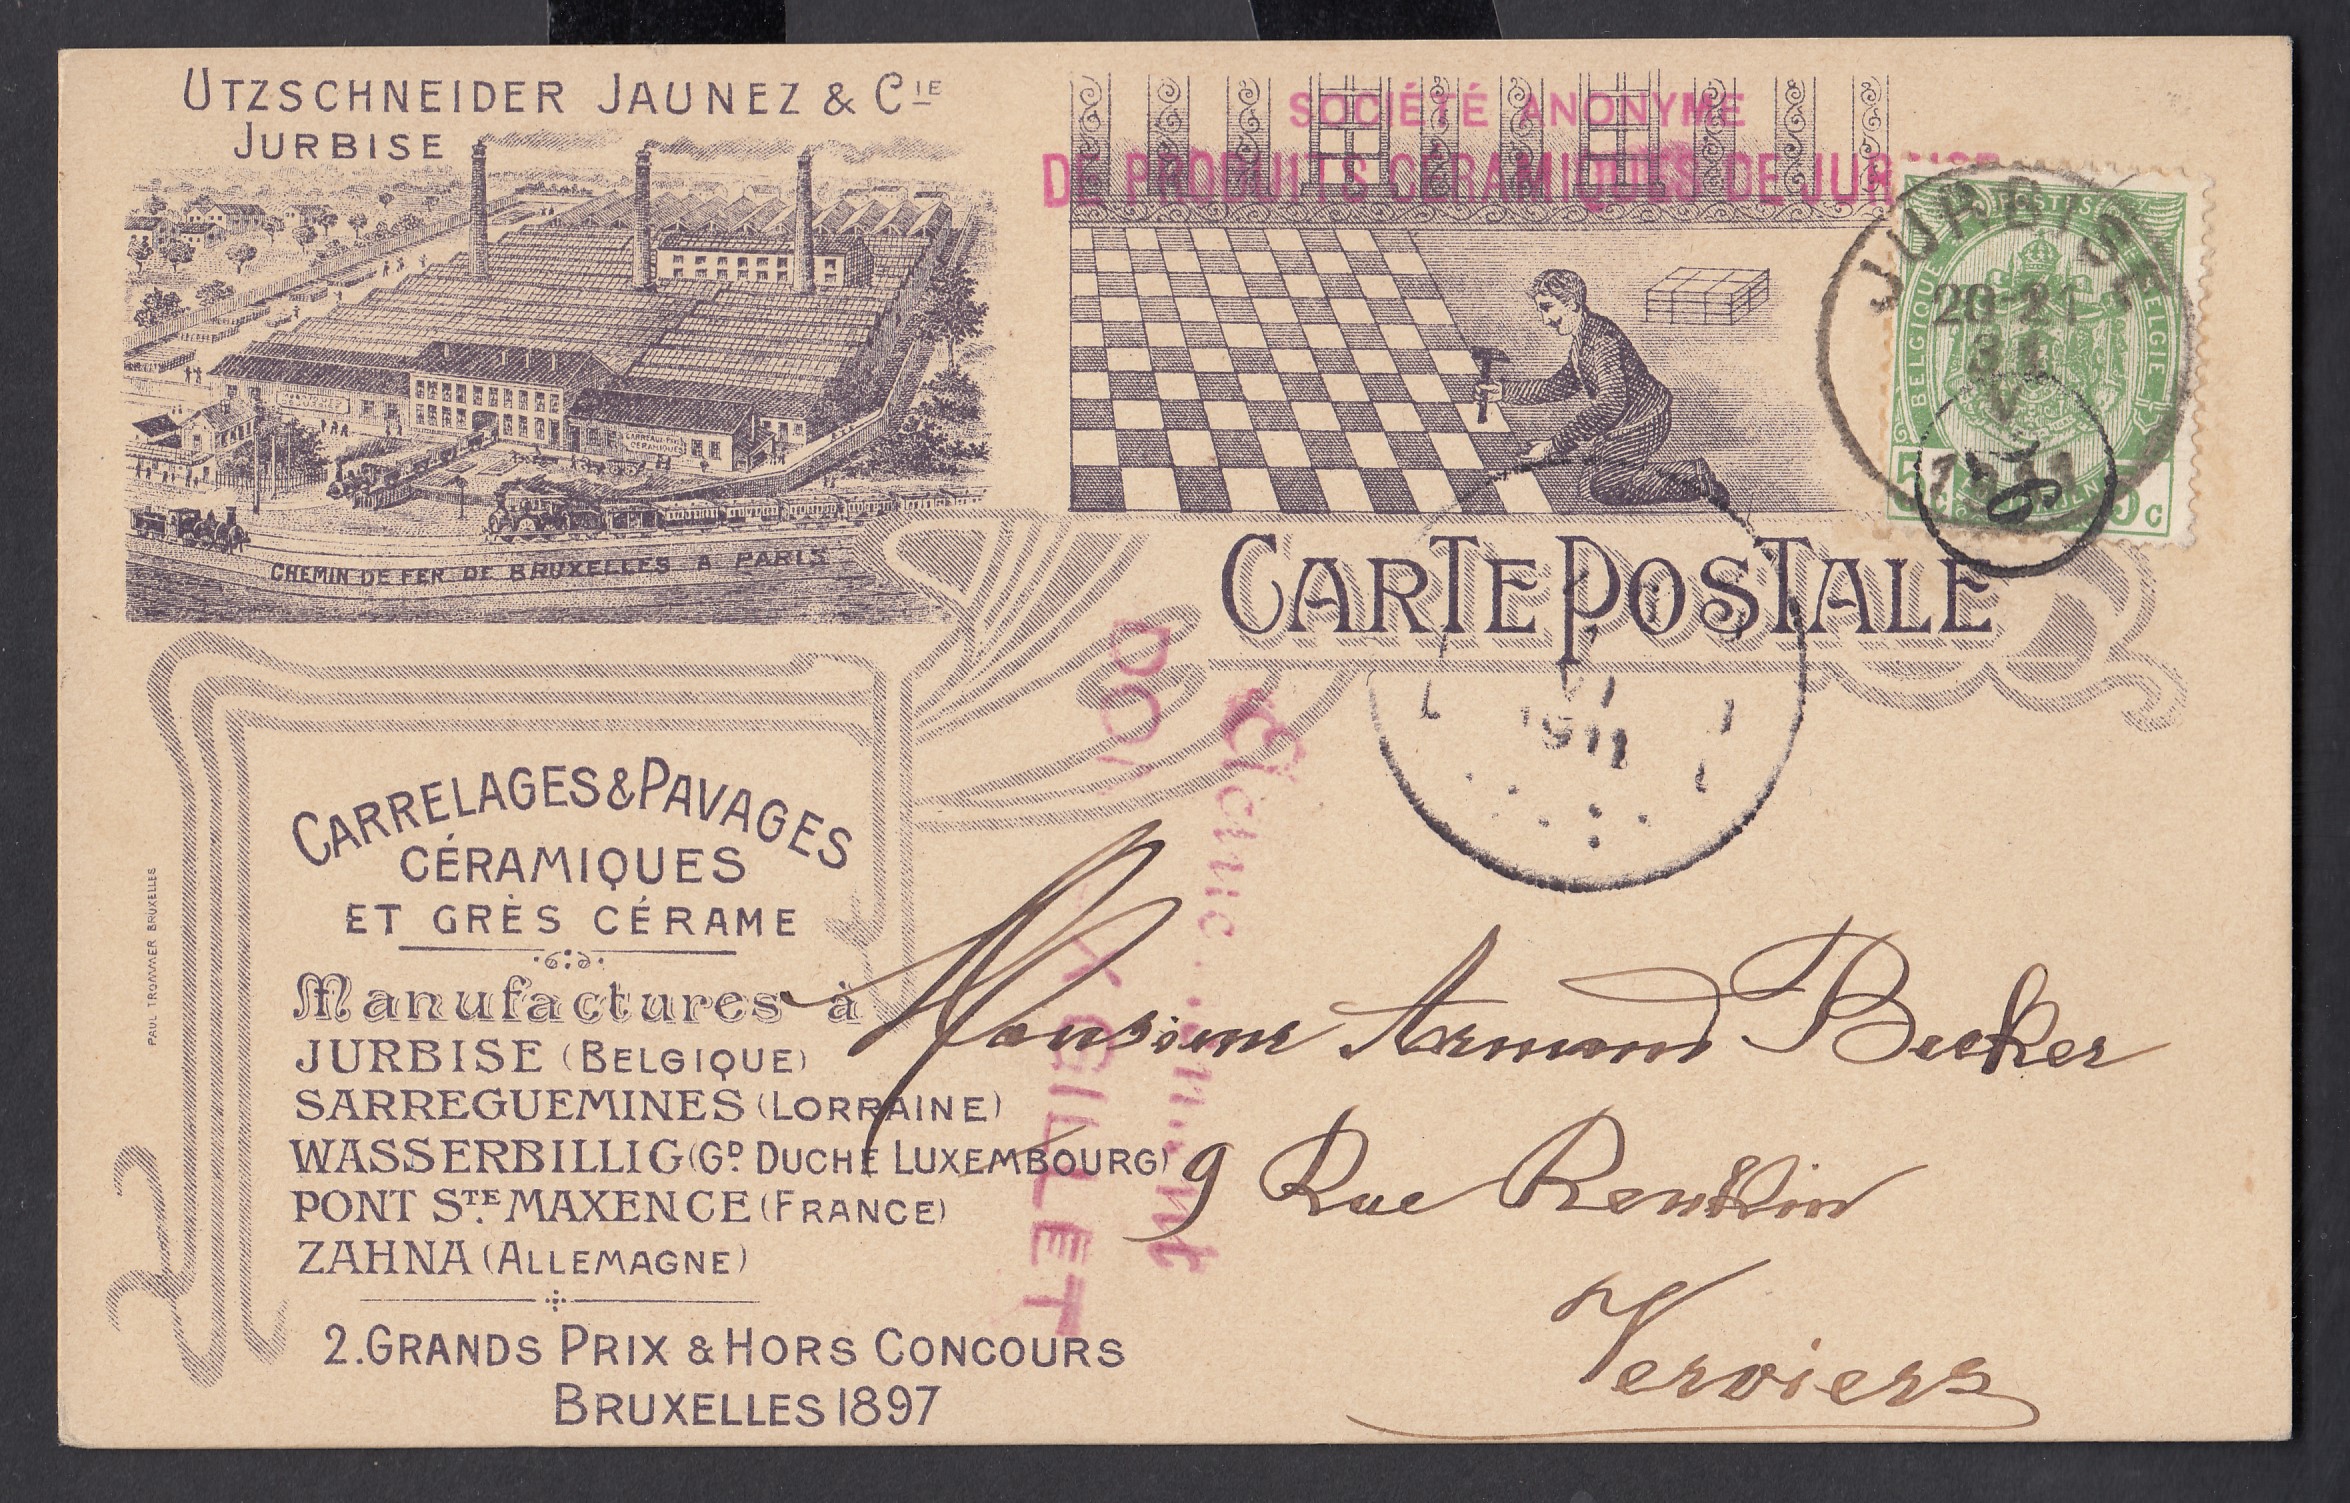 UTZSCHNEIDER JAUNEZ & CIE
JURBISE
CHEMIN DE FER DE BRUXELLES A PARIS
CARREAUX
CÉRAMIQUES
SOCIÉTÉ ANONYME
DE PRODUITS CÉRAMIQUES DE JURBISE
JURBISE
20-21
31
V
1911
POSTES
BELGIQUE
BELGIE
5 c
5 c
CARTE POSTALE
VI
1911
CARRELAGES & PAVAGES
CÉRAMIQUES
ET GRÈS CÉRAME
Manufactures à
JURBISE (BELGIQUE)
SARREGUEMINES (LORRAINE)
WASSERBILLIG (GD DUCHÉ LUXEMBOURG)
PONT STE MAXENCE (FRANCE)
ZAHNA (ALLEMAGNE)
2. GRANDS PRIX & HORS CONCOURS
BRUXELLES 1897
PAUL TROMMER BRUXELLES
GILLET
Monsieur Armand Becker
9 Rue Renkin
Verviers